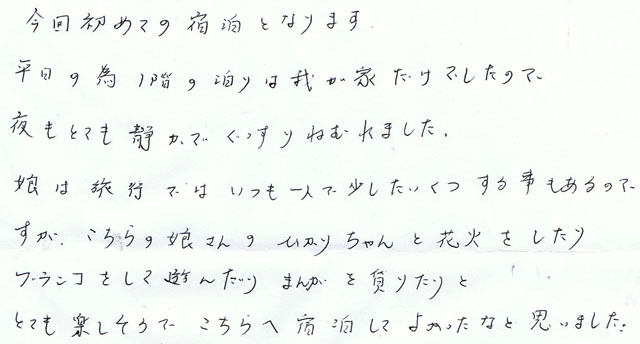 今回初めての宿泊となります.
平日の為1階の泊りは我が家だけでしたので
夜もとても静かでぐっすりねむれました.
娘は旅行ではいつも一人で少したいくつする事もあるので
すが、こちらの娘さんのひかりちゃんと花火をしたり
ブランコをして遊んだり まんがを貸りたりと
とても楽しそうで こちらへ宿泊してよかったなと思いました.